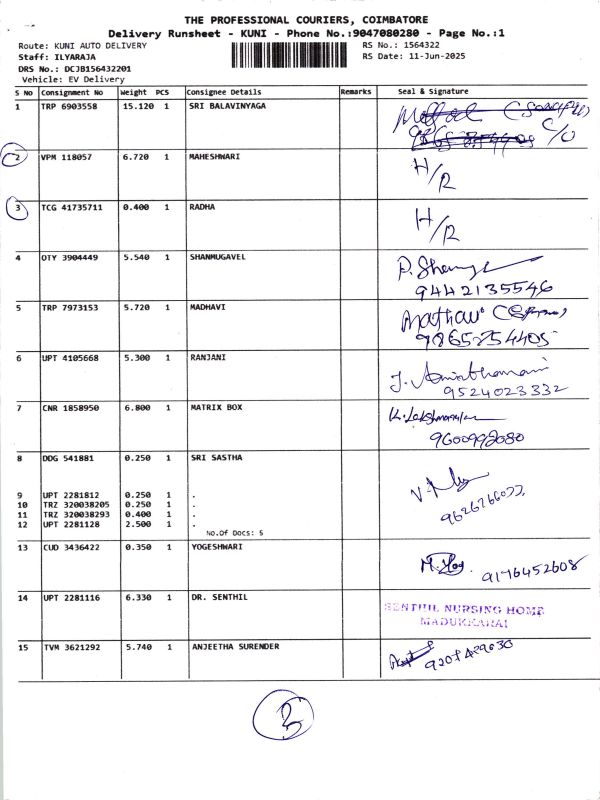 THE PROFESSIONAL COURIERS, COIMBATORE
Delivery Runsheet - KUNI - Phone No.:9047080280 - Page No.:1
Route: KUNI AUTO DELIVERY RS No.: 1564322
Staff: ILYARAJA RS Date: 11-Jun-2025
DRS No.: DCJB156432201
Vehicle: EV Delivery
S No Consignment No Weight PCS Consignee Details Remarks Seal & Signature
1 TRP 6903558 15.120 1 SRI BALAVINYAGA
C/O
2 VPM 118057 6.720 1 MAHESHWARI H/R
3 TCG 41735711 0.400 1 RADHA H/R
4 OTY 3904449 5.540 1 SHANMUGAVEL
9442135546
5 TRP 7973153 5.720 1 MADHAVI
9865254405
6 UPT 4105668 5.300 1 RANJANI
9524023332
7 CNR 1858950 6.800 1 MATRIX BOX
8 DDG 541881 0.250 1 SRI SASTHA
9 UPT 2281812 0.250 1 .
10 TRZ 320038205 0.250 1 .
11 TRZ 320038293 0.400 1 .
12 UPT 2281128 2.500 1 .
No.Of Docs: 5
13 CUD 3436422 0.350 1 YOGESHWARI
9176452608
14 UPT 2281116 6.330 1 DR. SENTHIL
SENTHIL NURSING HOME
MADUKKARAI
15 TVM 3621292 5.740 1 ANJEETHA SURENDER